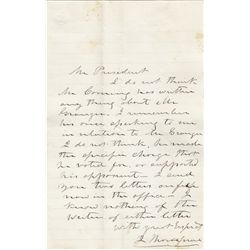 Mr President
I do not think
Mr Corning has written
any thing about Mr
Granger. I remember
his once speaking to me
in relation to Mr Granger
I do not think, he made
the specific charge that
he voted for, or supported
his opponent — I send
you two letters on file
now in the office — I
know nothing of the
writer of either letter
with great respect